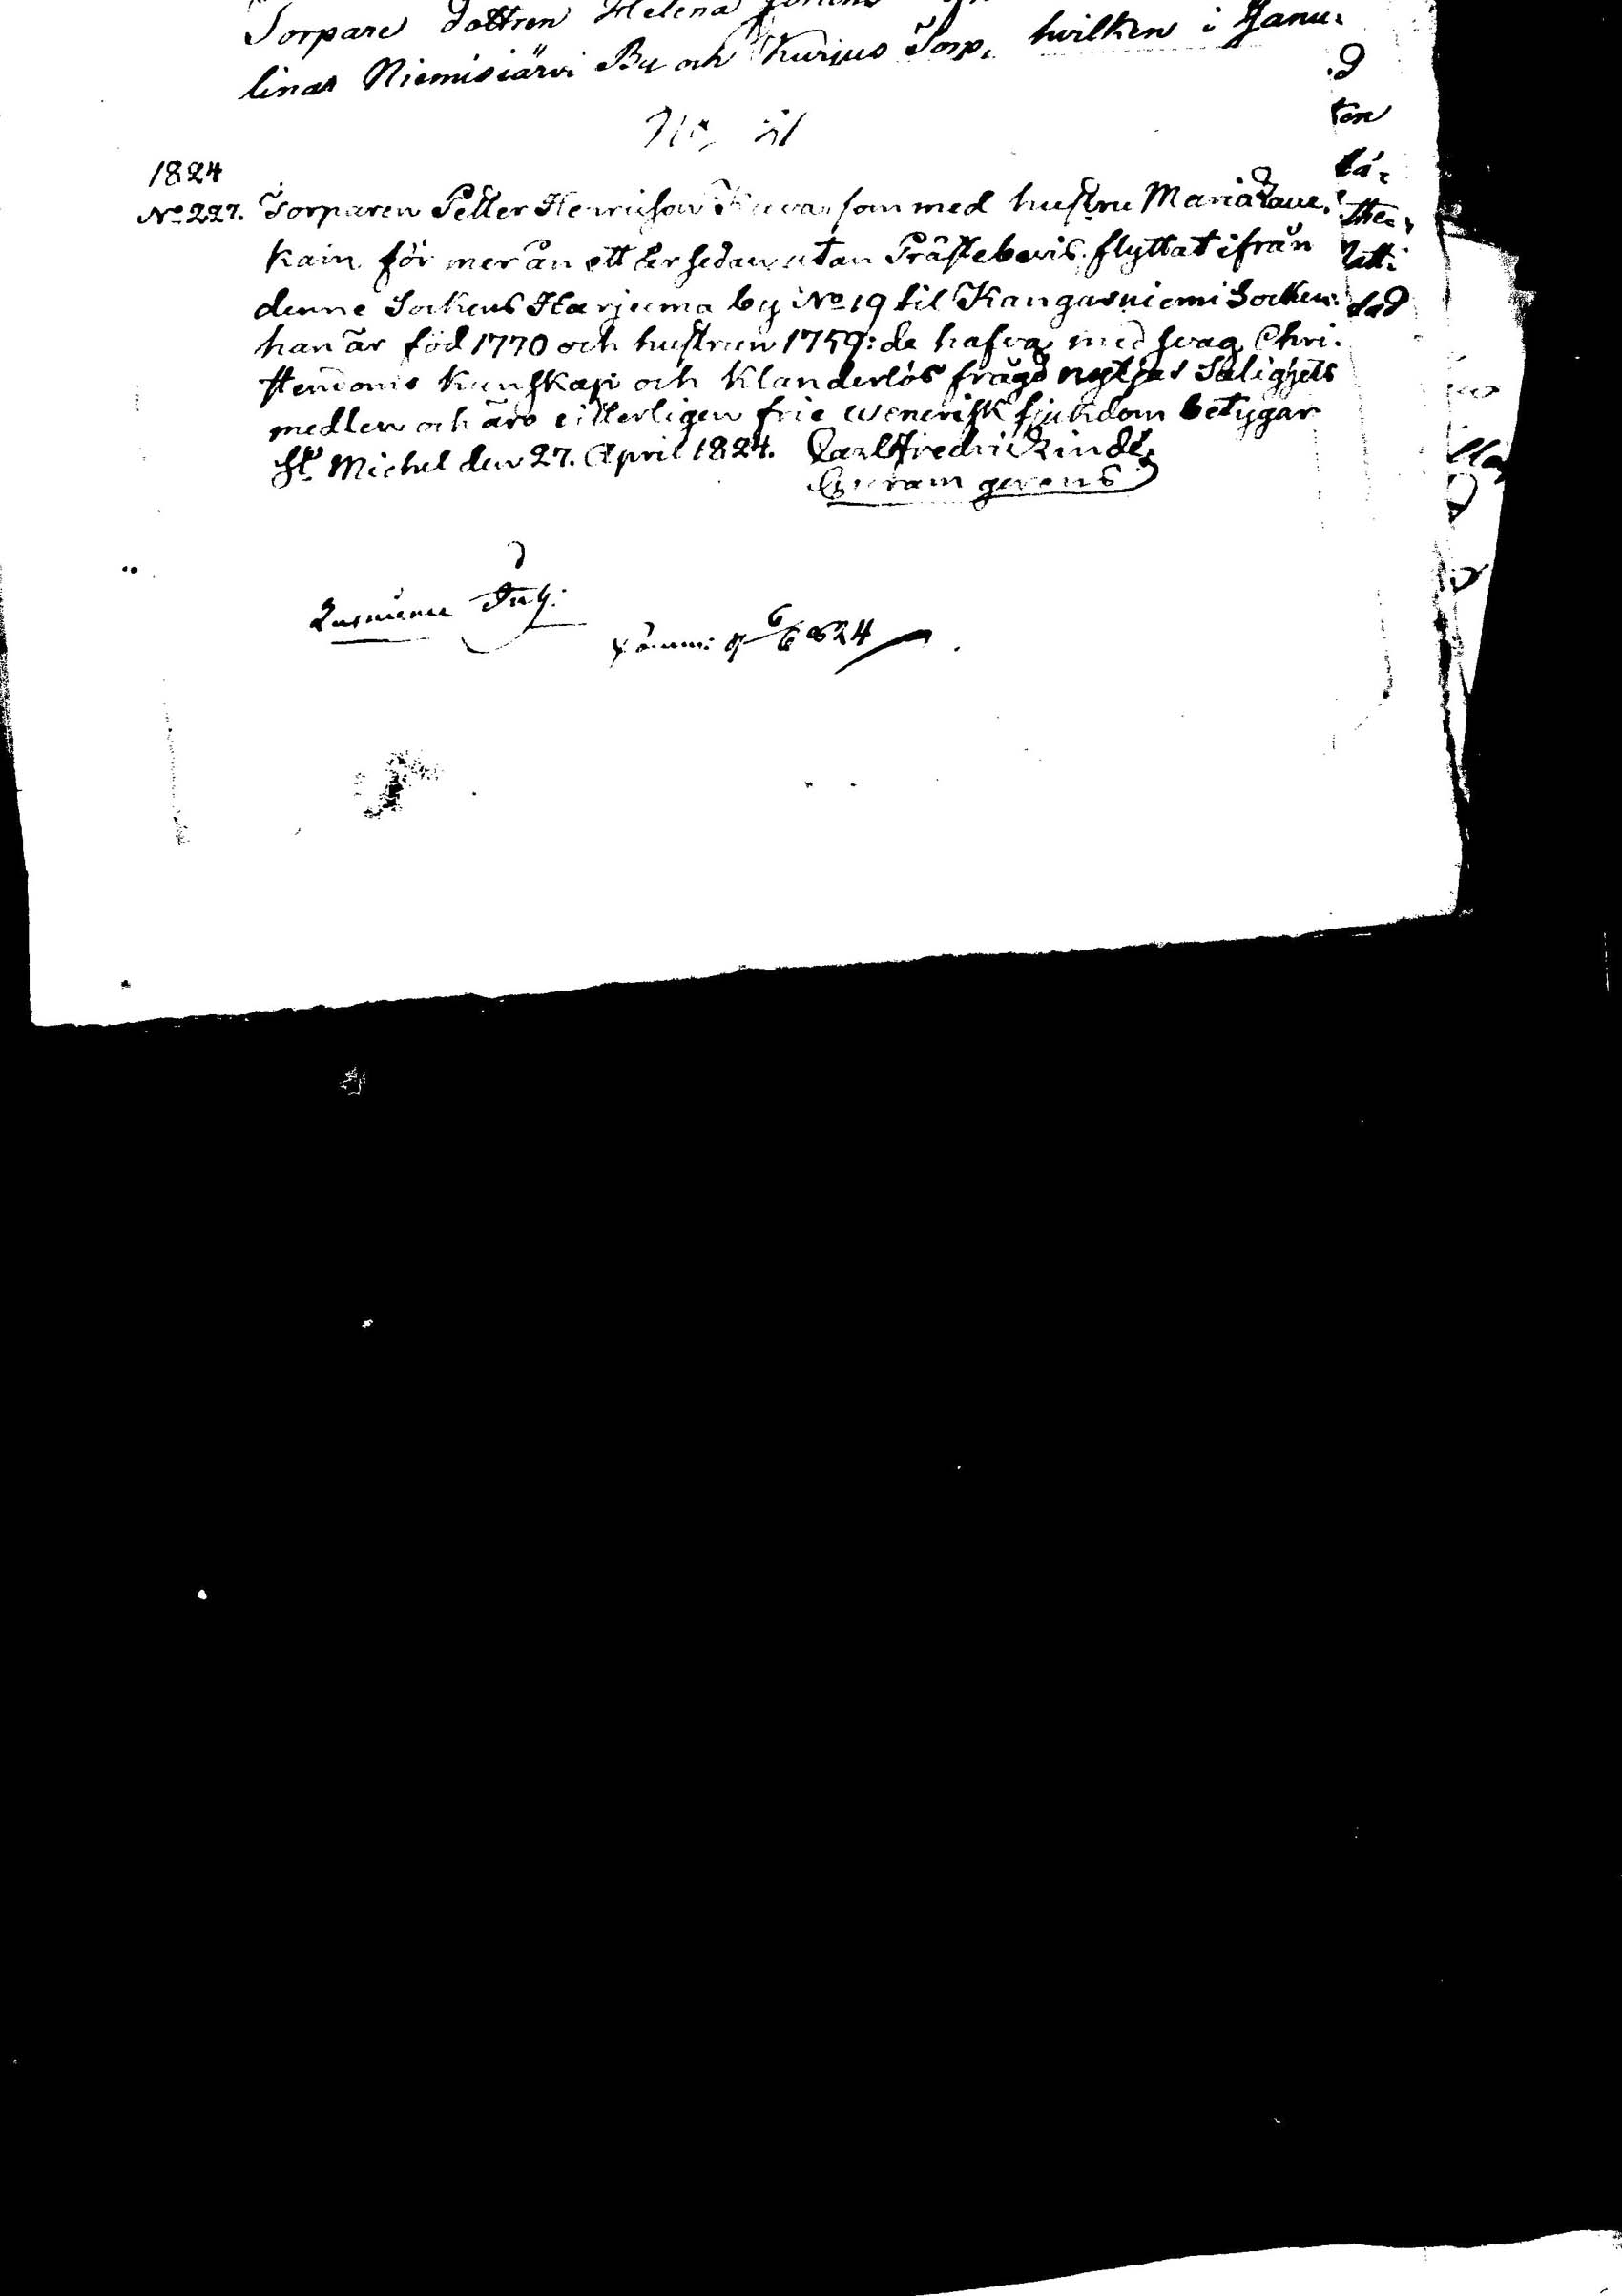 Torpare dottren Helena
linas Niemisjärvi By och Kurjus Torp, hvilken i Janu-
No
1824
No 227. Torparen Petter Henricson som med hustru Maria Laue-
kain för mer än ett år sedan utan Prästebevis flyttat ifrån
denne Sockens Harjuma by No 19 til Kangasniemi Socken:
han är föd 1770 och hustrun 1759: de hafva med svag Chri-
stendoms kunskap och klanderlös frägd nyttjat Salighets
medlen och äro vitterligen frie wenerisk sjukdom betygar
St. Michel den 27. April 1824. Carl Fredric
Curam gerens
6/6 824